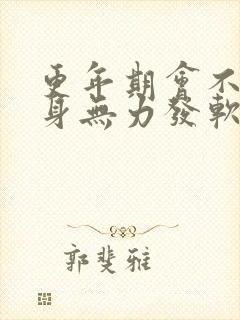 更年期會不
身無力發軟
郭斐雅